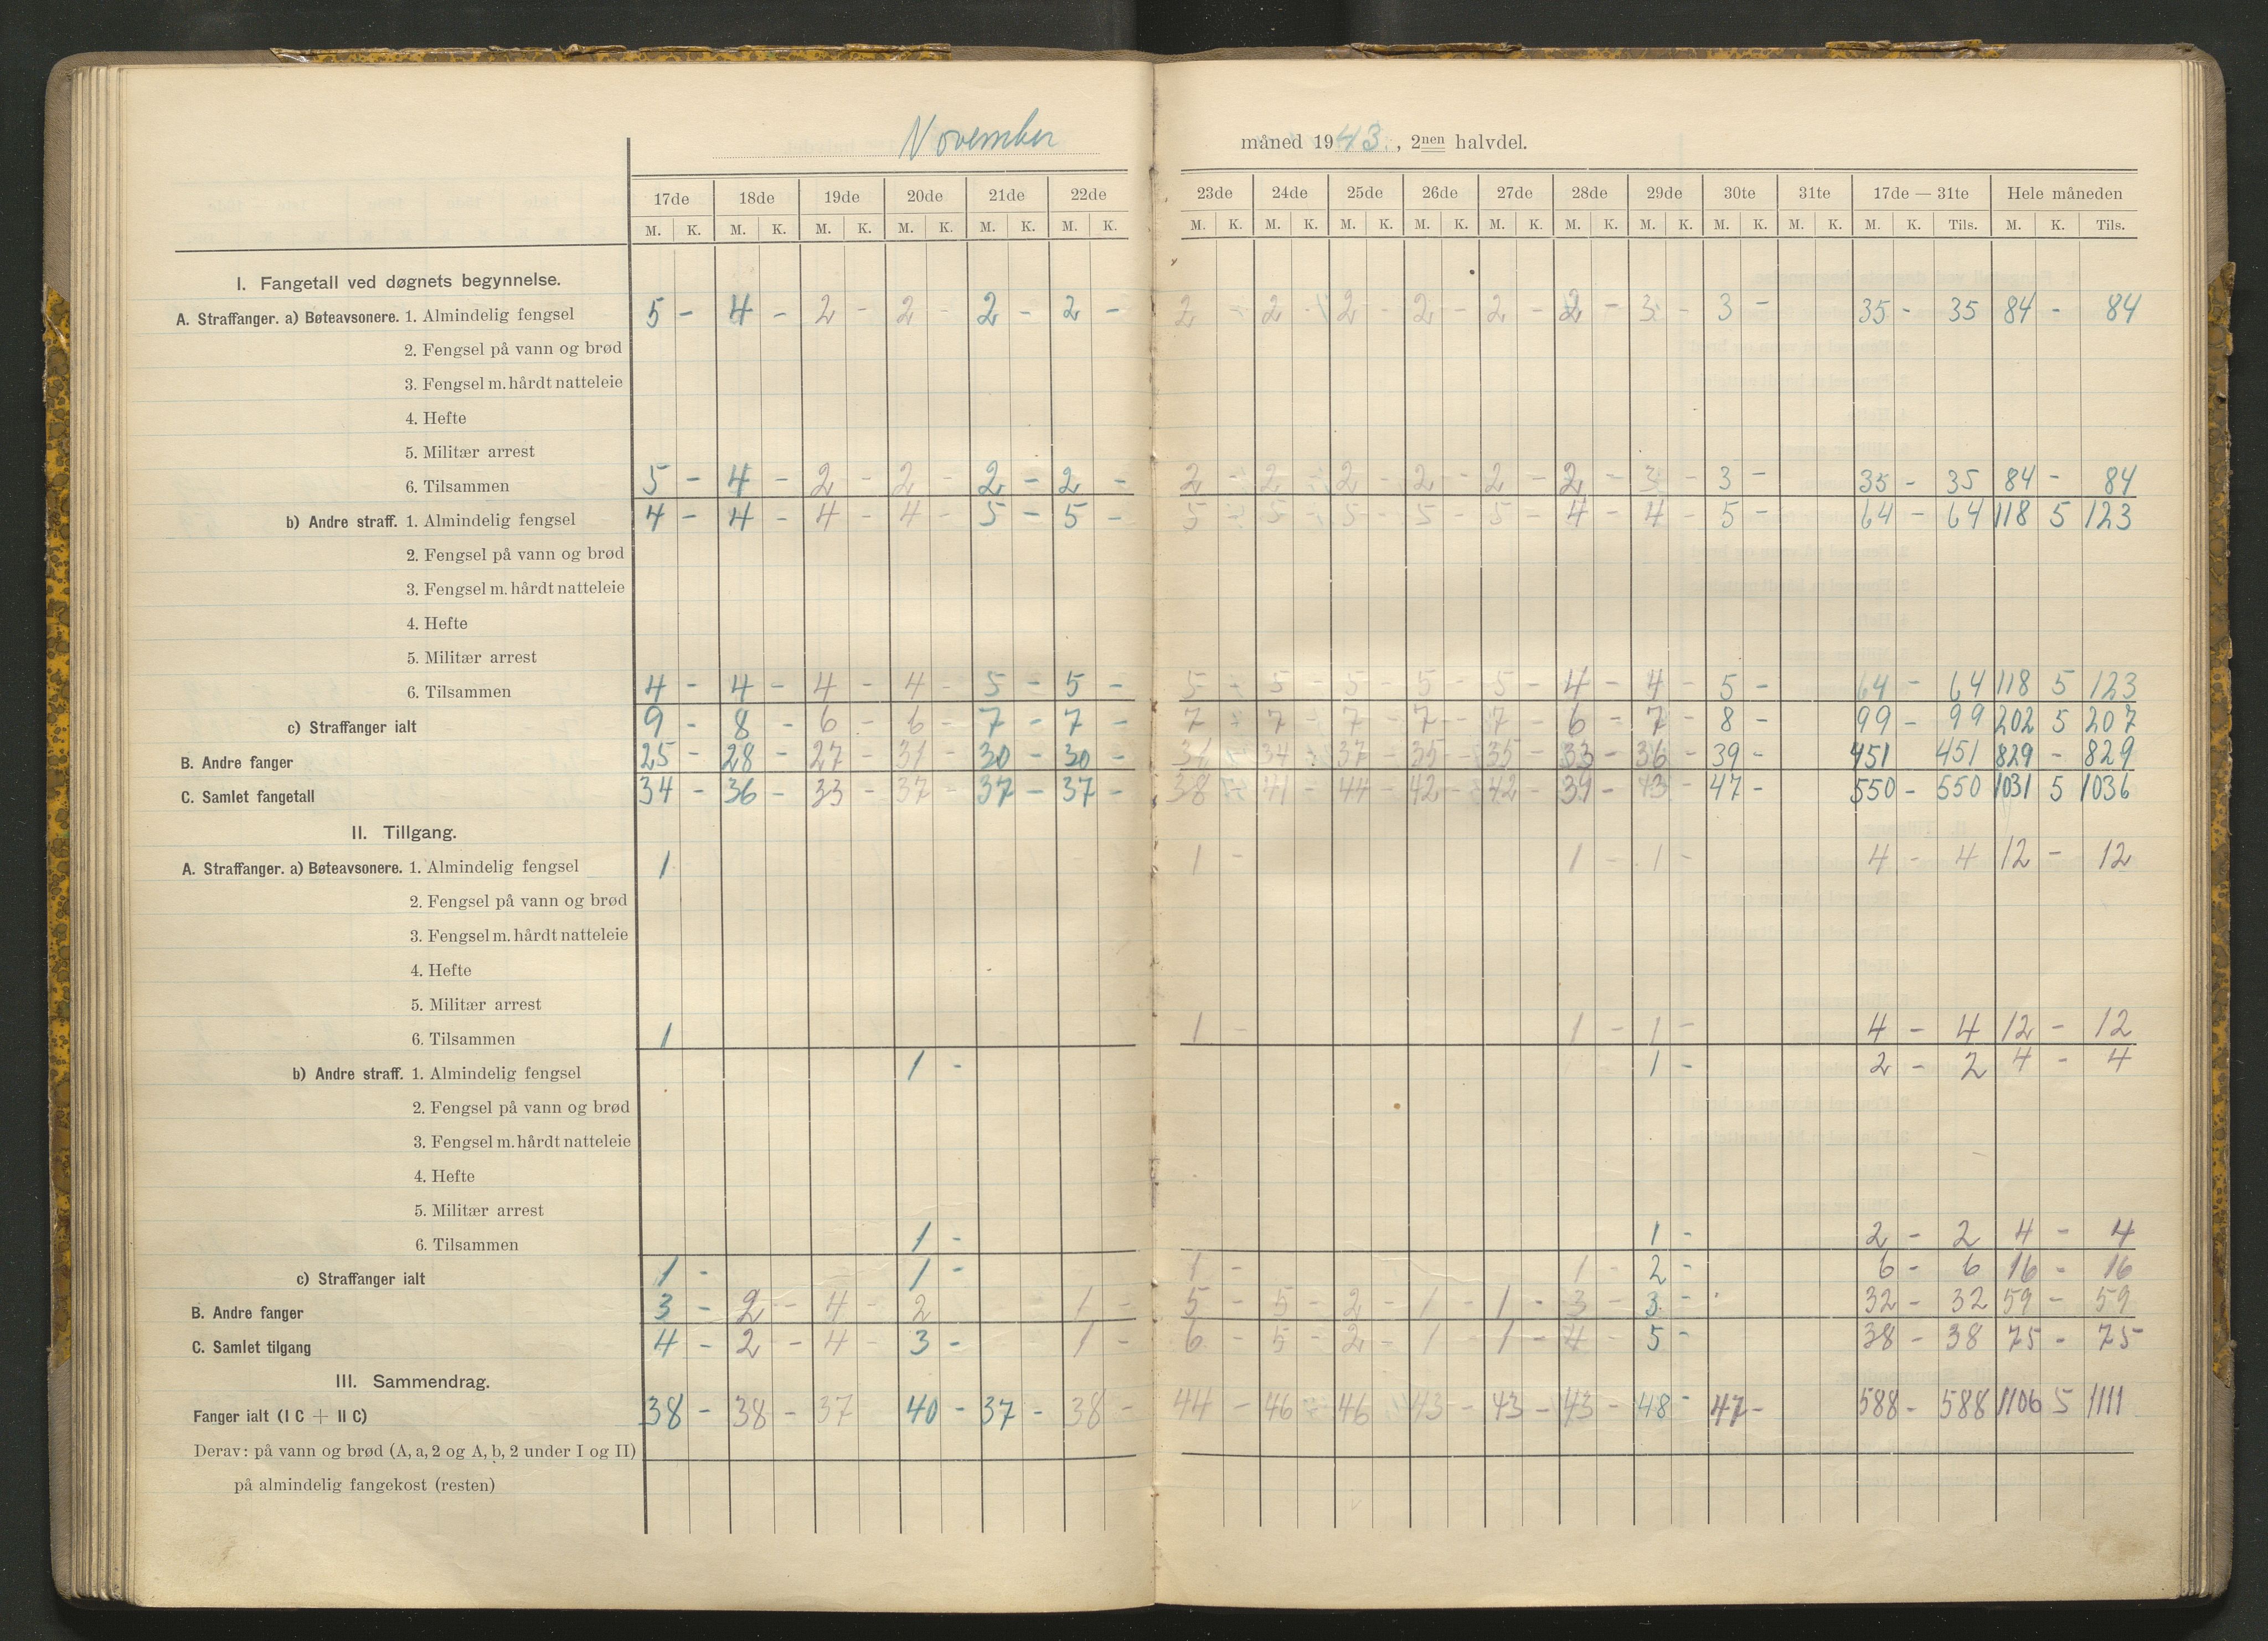 November måned 1943, 2nen halvdel.
17de 18de 19de 20de 21de 22de 23de 24de 25de 26de 27de 28de 29de 30te 31te 17de — 31te Hele måneden
M. K. M. K. M. K. M. K. M. K. M. K. M. K. M. K. M. K. M. K. M. K. M. K. M. K. M. K. M. K. M. K. Tils. M. K. Tils.
I. Fangetall ved døgnets begynnelse.
A. Straffanger. a) Bøteavsonere. 1. Almindelig fengsel 5 - 4 - 2 - 2 - 2 - 2 - 2 - 2 - 2 - 2 - 2 - 2 - 3 - 3 - 35 - 35 84 - 84
2. Fengsel på vann og brød
3. Fengsel m. hårdt natteleie
4. Hefte
5. Militær arrest
6. Tilsammen 5 - 4 - 2 - 2 - 2 - 2 - 2 - 2 - 2 - 2 - 2 - 2 - 3 - 3 - 35 - 35 84 - 84
b) Andre straff. 1. Almindelig fengsel 4 - 4 - 4 - 4 - 5 - 5 - 5 - 5 - 5 - 5 - 5 - 4 - 4 - 5 - 64 - 64 118 5 123
2. Fengsel på vann og brød
3. Fengsel m. hårdt natteleie
4. Hefte
5. Militær arrest
6. Tilsammen 4 - 4 - 4 - 4 - 5 - 5 - 5 - 5 - 5 - 5 - 5 - 4 - 4 - 5 - 64 - 64 118 5 123
c) Straffanger ialt 9 - 8 - 6 - 6 - 7 - 7 - 7 - 7 - 7 - 7 - 7 - 6 - 7 - 8 - 99 - 99 202 5 207
B. Andre fanger 25 - 28 - 27 - 31 - 30 - 30 - 31 - 34 - 37 - 35 - 35 - 33 - 36 - 39 - 451 451 829 - 829
C. Samlet fangetall 34 - 36 - 33 - 37 - 37 - 37 - 38 - 41 - 44 - 42 - 42 - 39 - 43 - 47 - 550 - 550 1031 5 1036
II. Tillgang.
A. Straffanger. a) Bøteavsonere. 1. Almindelig fengsel 1 1 - 1 - 1 - 4 - 4 12 - 12
2. Fengsel på vann og brød
3. Fengsel m. hårdt natteleie
4. Hefte
5. Militær arrest
6. Tilsammen 1 1 - 1 - 1 - 4 - 4 12 - 12
b) Andre straff. 1. Almindelig fengsel 1 - 1 - 2 - 2 4 - 4
2. Fengsel på vann og brød
3. Fengsel m. hårdt natteleie
4. Hefte
5. Militær arrest
6. Tilsammen 1 - 1 - 2 - 2 4 - 4
c) Straffanger ialt 1 - 1 - 1 - 1 - 2 - 6 - 6 16 - 16
B. Andre fanger 3 - 2 - 4 - 2 1 - 5 - 5 - 2 - 1 - 1 - 3 - 3 - 32 - 32 59 - 59
C. Samlet tilgang 4 - 2 - 4 - 3 - 1 - 6 - 5 - 2 - 1 - 1 - 4 - 5 - 38 - 38 75 - 75
III. Sammendrag.
Fanger ialt (I C + II C) 38 - 38 - 37 40 - 37 - 38 - 44 - 46 - 46 43 - 43 - 43 - 48 - 47 - 588 - 588 1106 5 1111
Derav: på vann og brød (A, a, 2 og A, b, 2 under I og II)
på almindelig fangekost (resten)